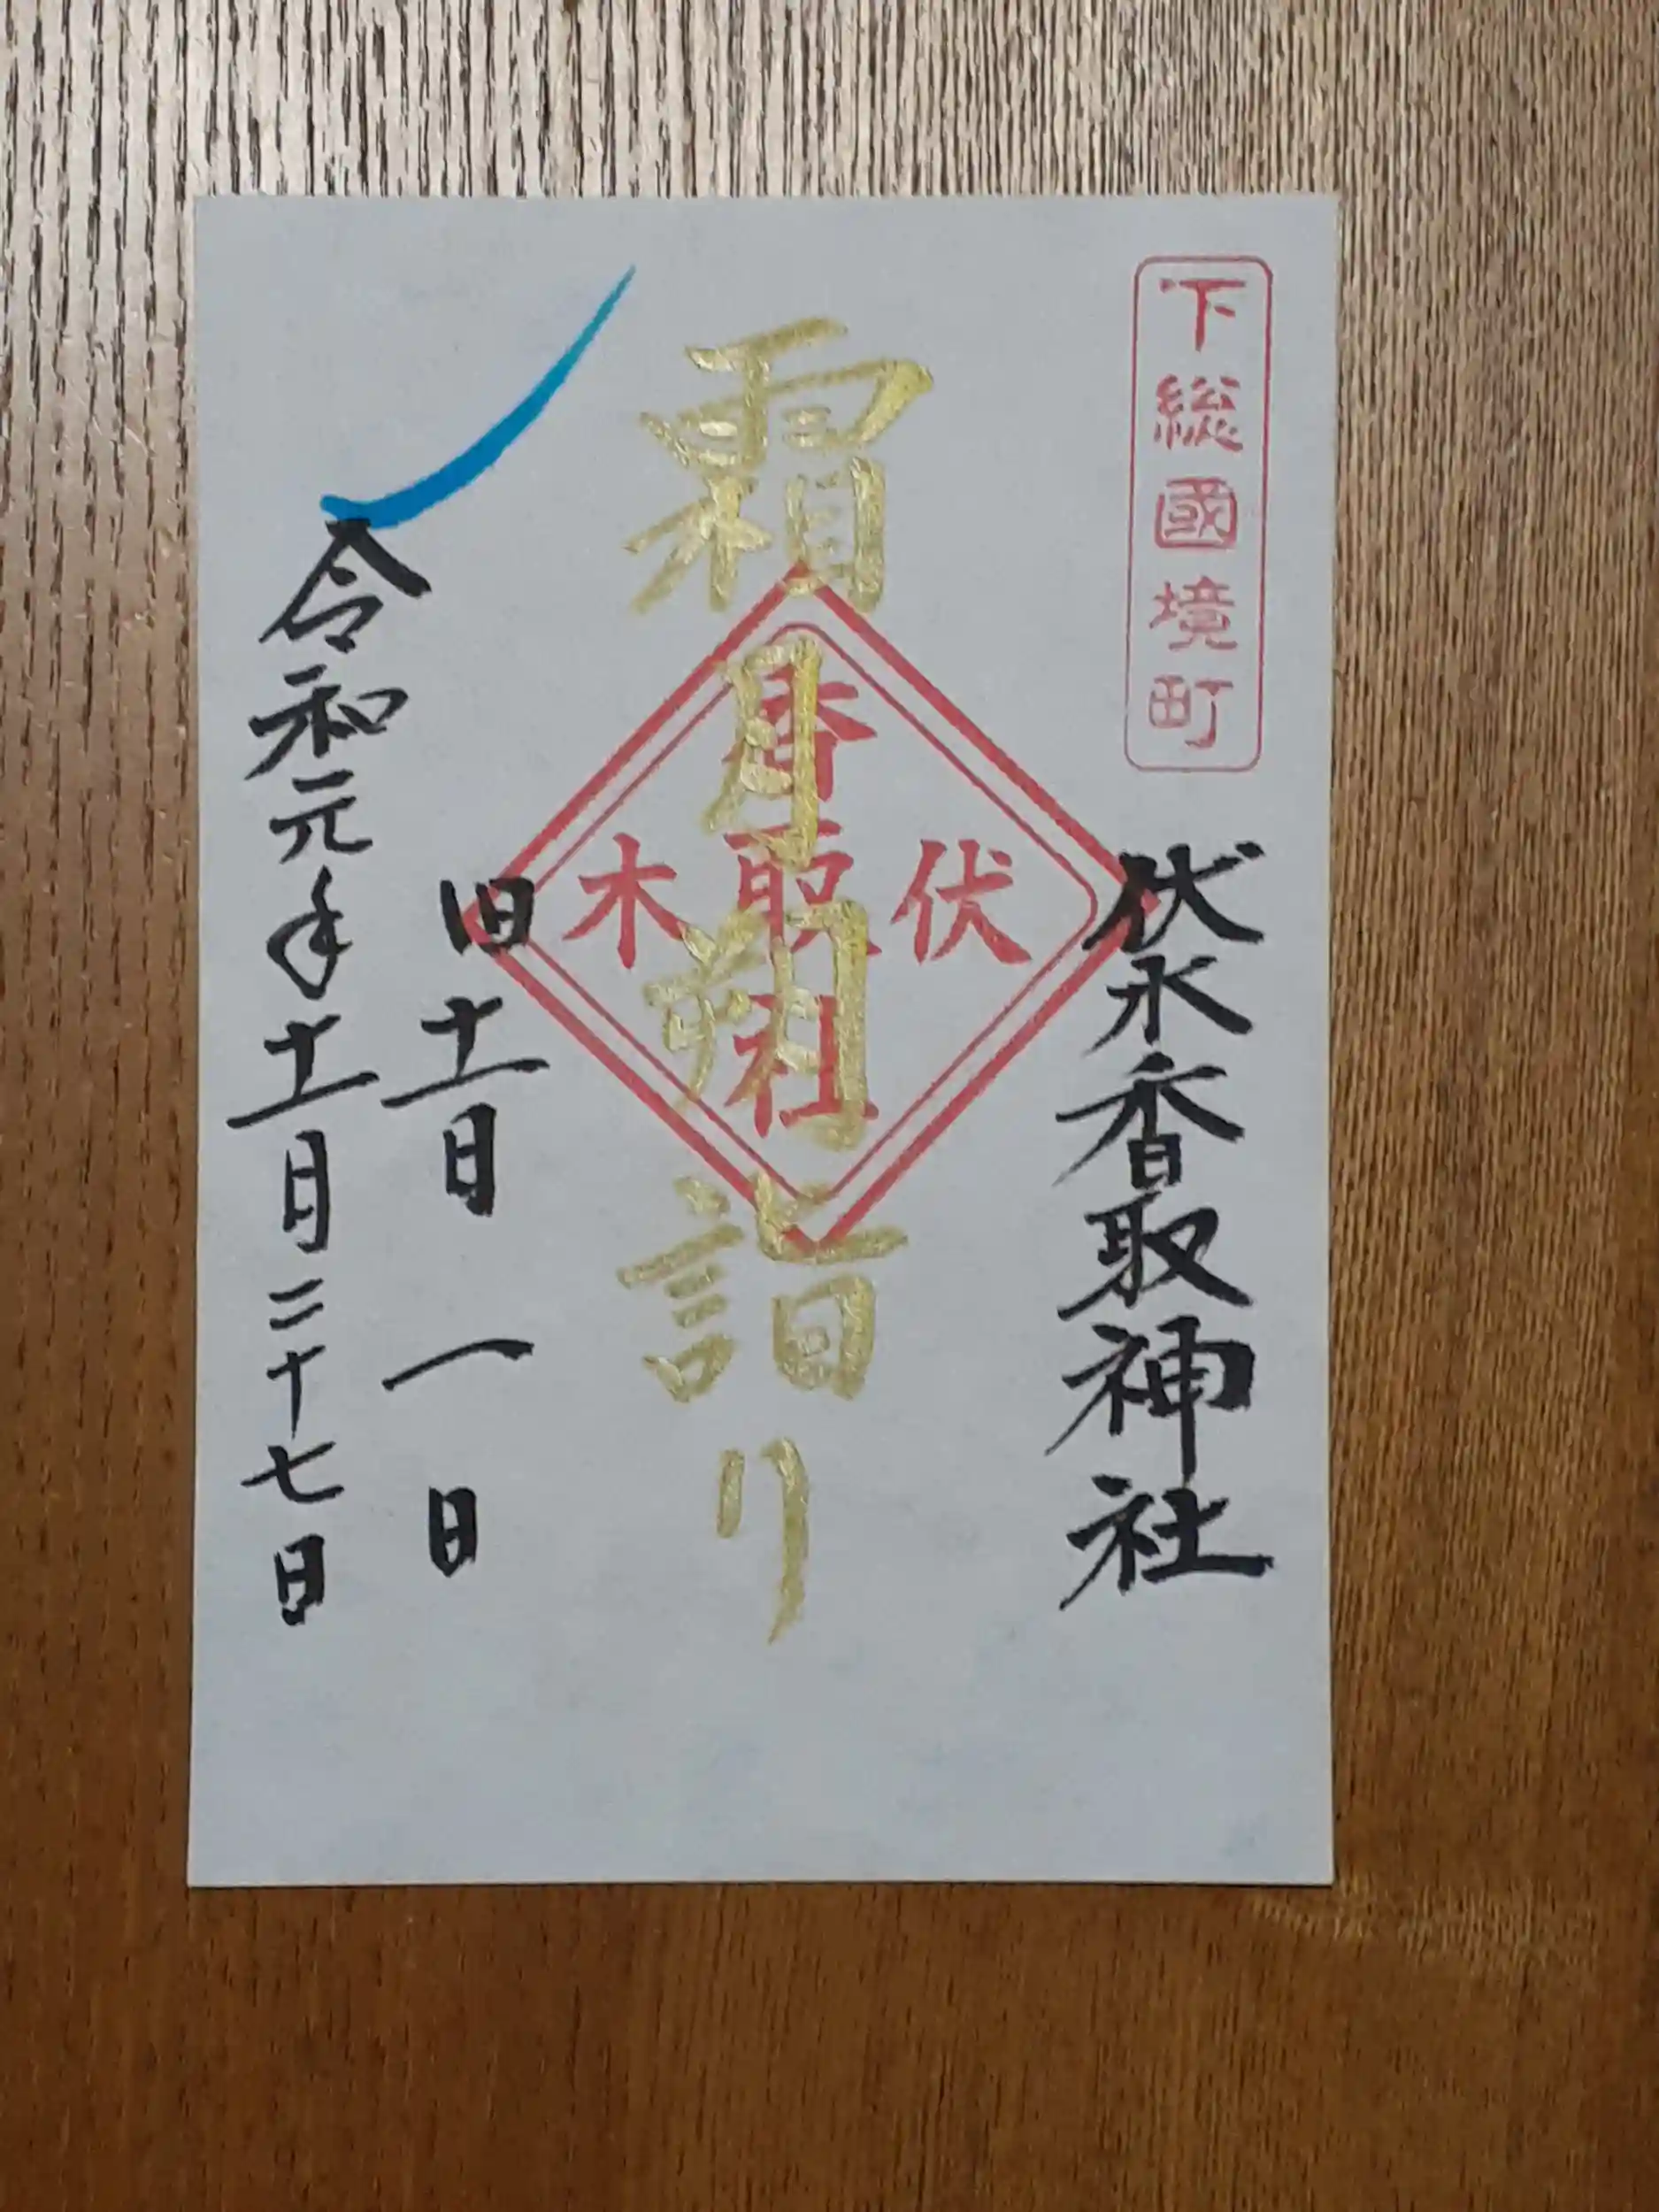 下総國境町
伏木香取神社
霜月朔詣り
香取社
伏木
旧十一月一日
令和元年十一月二十七日